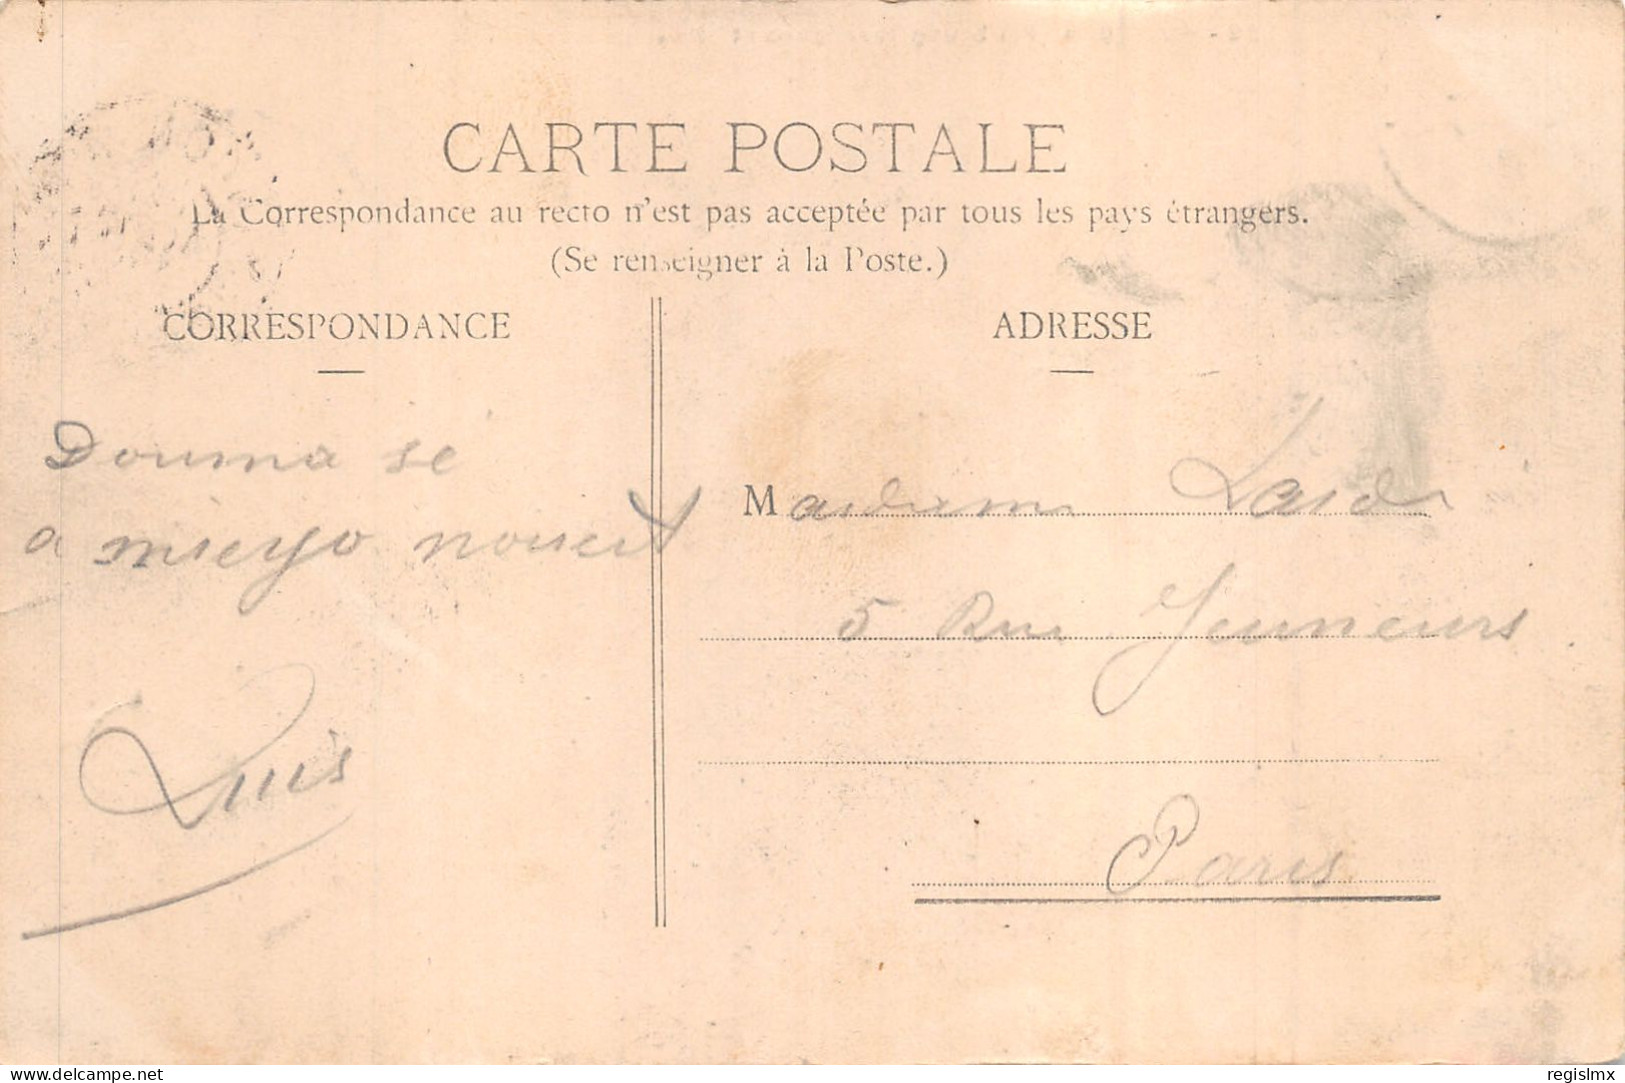 CARTE POSTALE
La Correspondance au recto n'est pas acceptée par tous les pays étrangers.
(Se renseigner à la Poste.)
CORRESPONDANCE
Douma se
a
Louis
ADRESSE
Madame
5 Rue Jeuneurs
Paris
regislmx